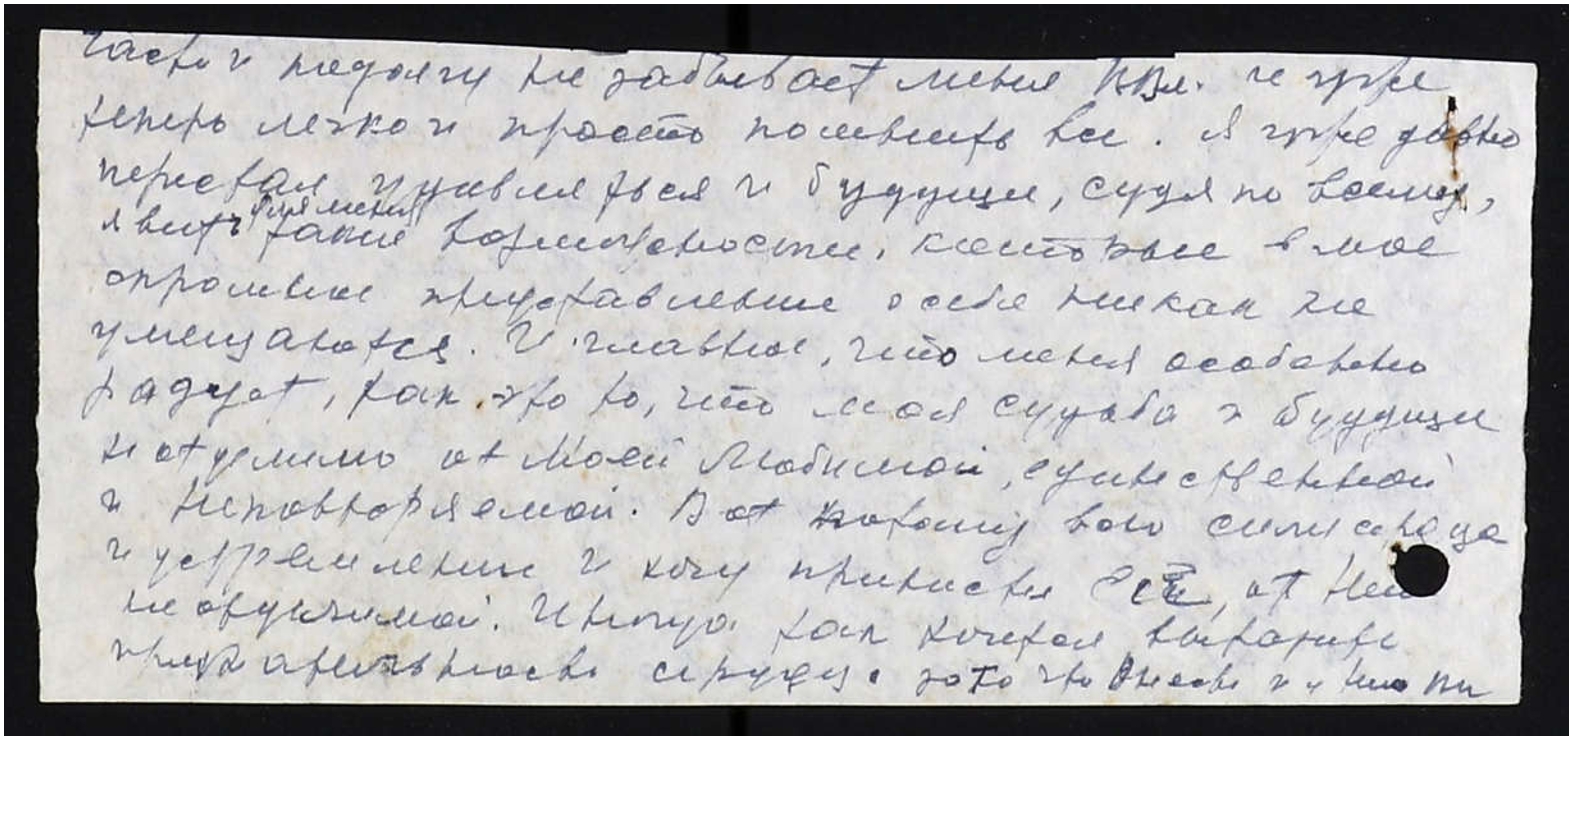 часто и подолгу не забывает меня В.Вл. и уже
теперь легко и просто помнить все. Я уже давно
перестал удивляться и будущее, судя по всему,
явит для меня такие возможности, которые в мое
скромное представление о себе никак не
умещаются. И главное, что меня особенно
радует, так это то, что моя судьба и будущее
неотделимо от Моей Любимой, единственной
и Неповторяемой. Вот потому всю силу сердца
и устремления и хочу принести Ей, от Неё
неотделимой. Иногда так хочется выразить
признательность сердца за то что